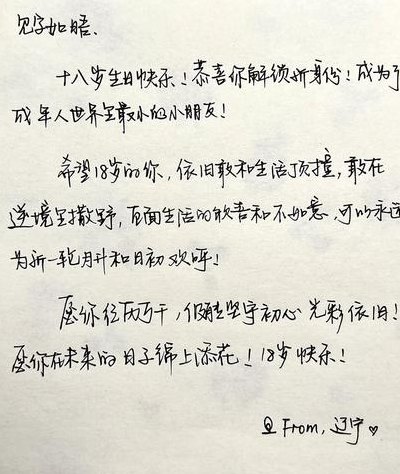 见字如晤.
十八岁生日快乐！恭喜你解锁新身份！成为了
成年人世界里最小的小朋友！
希望18岁的你，依旧敢和生活顶撞，敢在
逆境里撒野，直面生活的欢喜和不如意，可以永远
为新一轮月升和日初欢呼！
愿你经历万千，仍能坚守初心 光彩依旧！
愿你在未来的日子锦上添花！18岁快乐！
From，辽宁♡